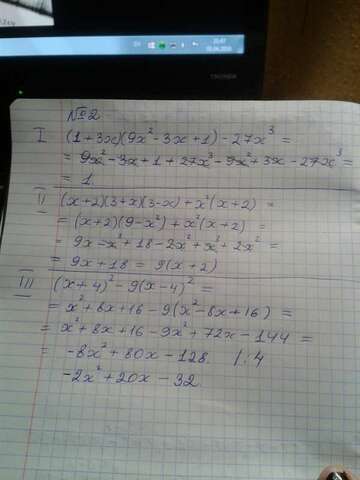 EN
21:47
20.04.2015
TOSHIBA
№2
I (1+3x)(9x²-3x+1)-27x³=
=9x²-3x+1+27x³-9x²+3x-27x³=
=1.
II (x+2)(3+x)(3-x)+x²(x+2)=
=(x+2)(9-x²)+x²(x+2)=
=9x-x³+18-2x²+x³+2x²=
=9x+18=9(x+2)
III (x+4)²-9(x-4)²=
=x²+8x+16-9(x²-8x+16)=
=x²+8x+16-9x²+72x-144=
=-8x²+80x-128. |:4
-2x²+20x-32